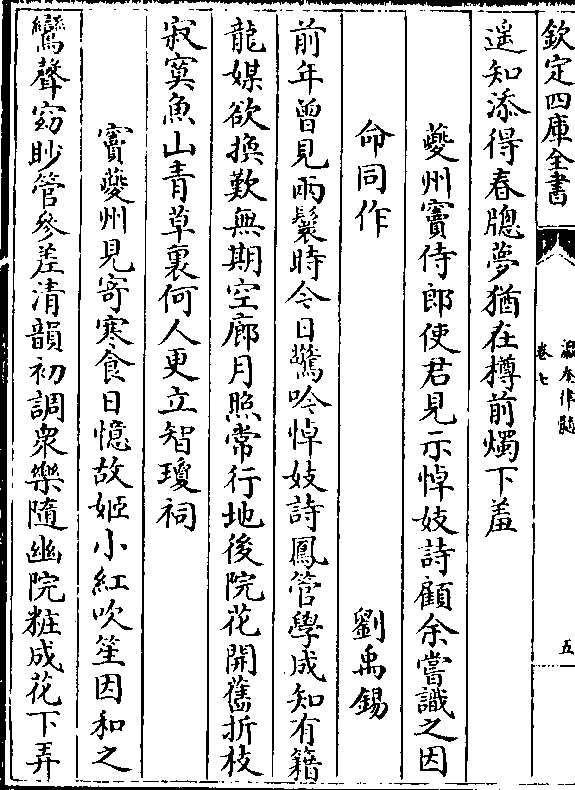 欽定四庫全書
卷七
五
遥知添得春牕夢猶在樽前燭下羞
夔州竇侍郎使君見示悼妓詩顧余嘗識之因
命同作
劉禹錫
前年曾見兩鬟時今日驚吟悼妓詩鳳管學成知有籍
龍媒欲換歎無期空廊月照常行地後院花開舊折枝
寂寞魚山青草裏何人更立智瓊祠
竇夔州見寄寒食日憶故姬小紅吹笙因和之
鸞聲窈眇管參差清韻初調衆樂隨幽院粧成花下弄